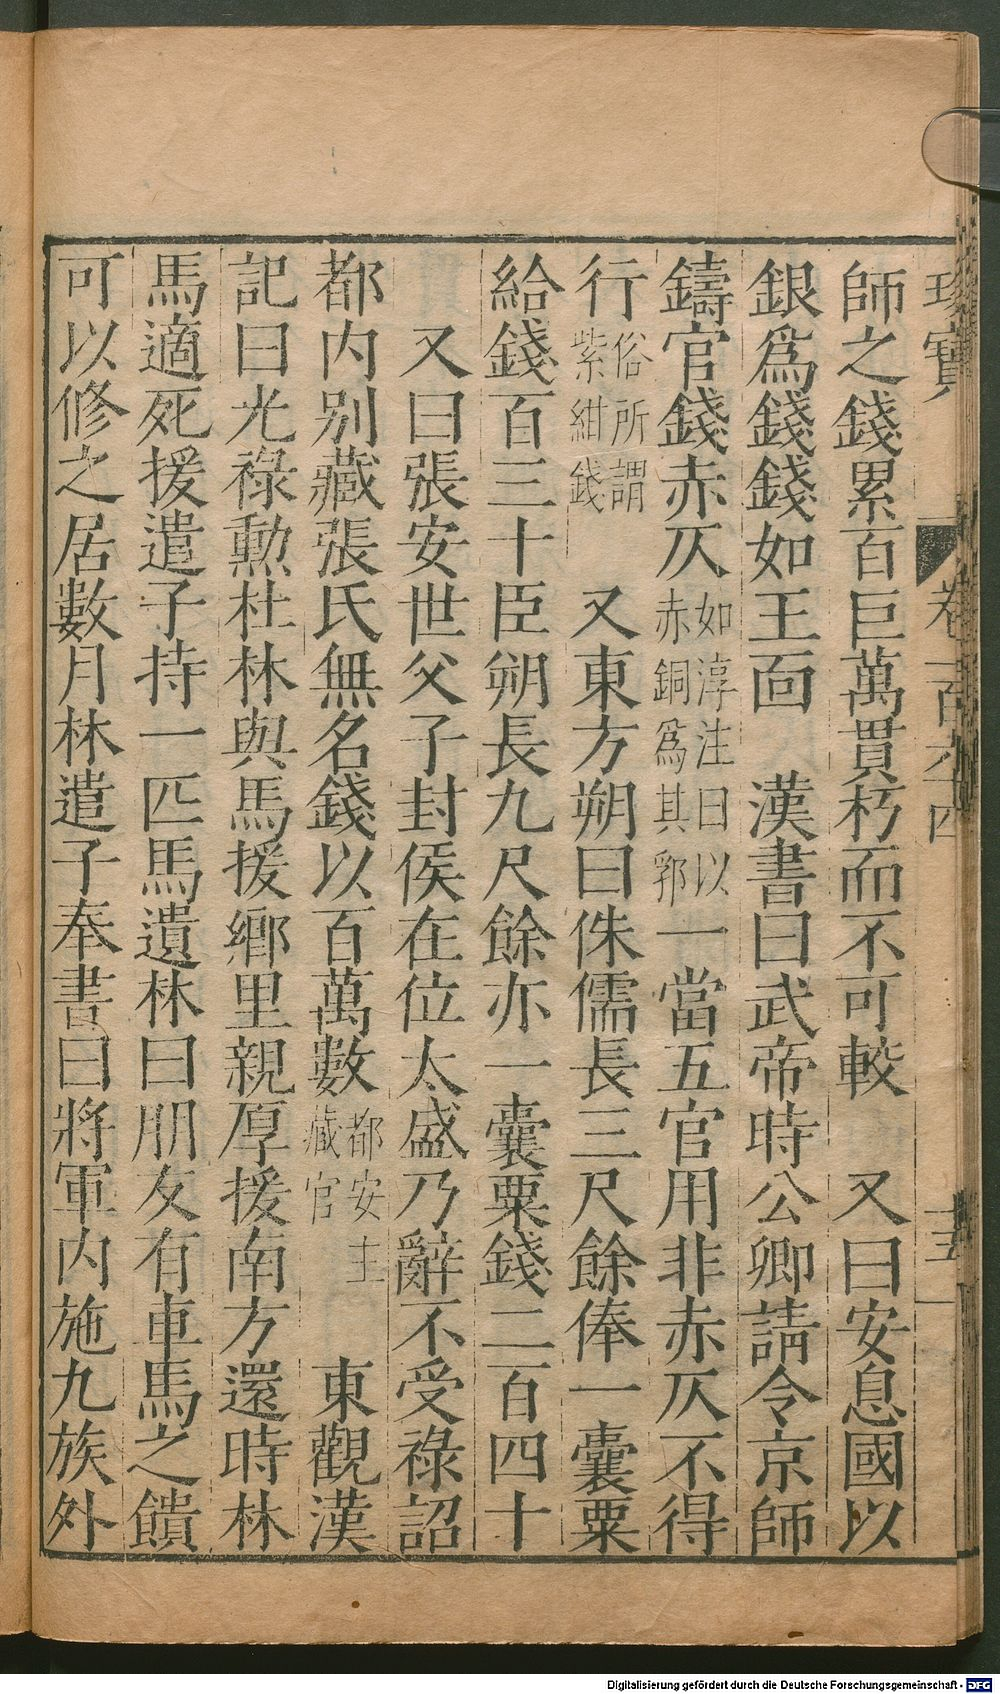 寶 卷一百六十四
師之錢累百巨萬貫朽而不可較 又曰安息國以
銀爲錢錢如王面 漢書曰武帝時公卿請令京師
鑄官錢赤仄如淳注曰以赤銅爲其郭一當五官用非赤仄不得
行俗所謂紫紺錢 又東方朔曰侏儒長三尺餘俸一囊粟
給錢百三十臣朔長九尺餘亦一囊粟錢二百四十
又曰張安世父子封侯在位太盛乃辭不受祿詔
都内别藏張氏無名錢以百萬數都安主藏官 東觀漢
記曰光祿勳杜林與馬援鄉里親厚援南方還時林
馬適死援遣子持一匹馬遺林曰朋友有車馬之饋
可以修之居數月林遣子奉書曰將軍内施九族外
Digitalisierung gefördert durch die Deutsche Forschungsgemeinschaft - DFG